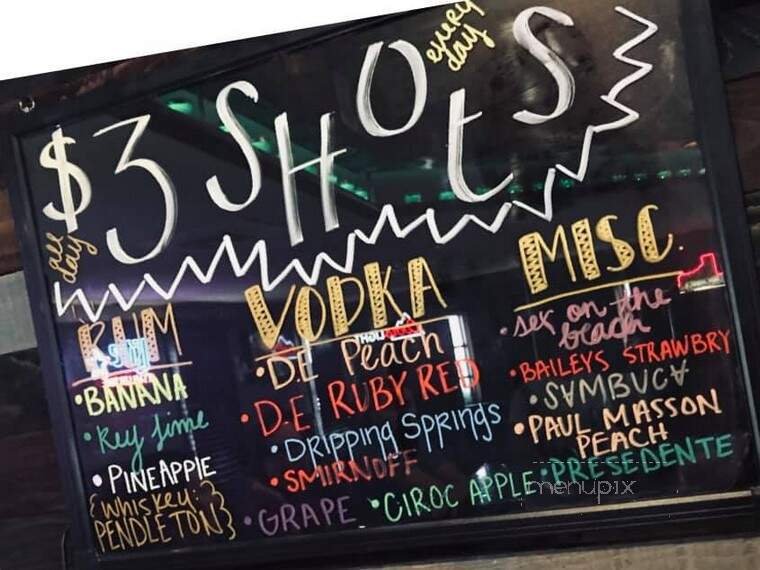 $3 SHOtS
every
day
all
day
RUM
•BANANA
•Key Lime
•PINEAPPLE
{WHISKEY:}
PENDLETON
VODKA
•D.E Peach
•D.E RUBY RED
•DRIPPING SPRINGS
•SMIRNOFF
•GRAPE •CIROC APPLE
MISC.
•sex on the
beach
•BAILEYS STRAWBRY
•SAMBUCA
•PAUL MASSON
PEACH
•PRESEDENTE
menupix